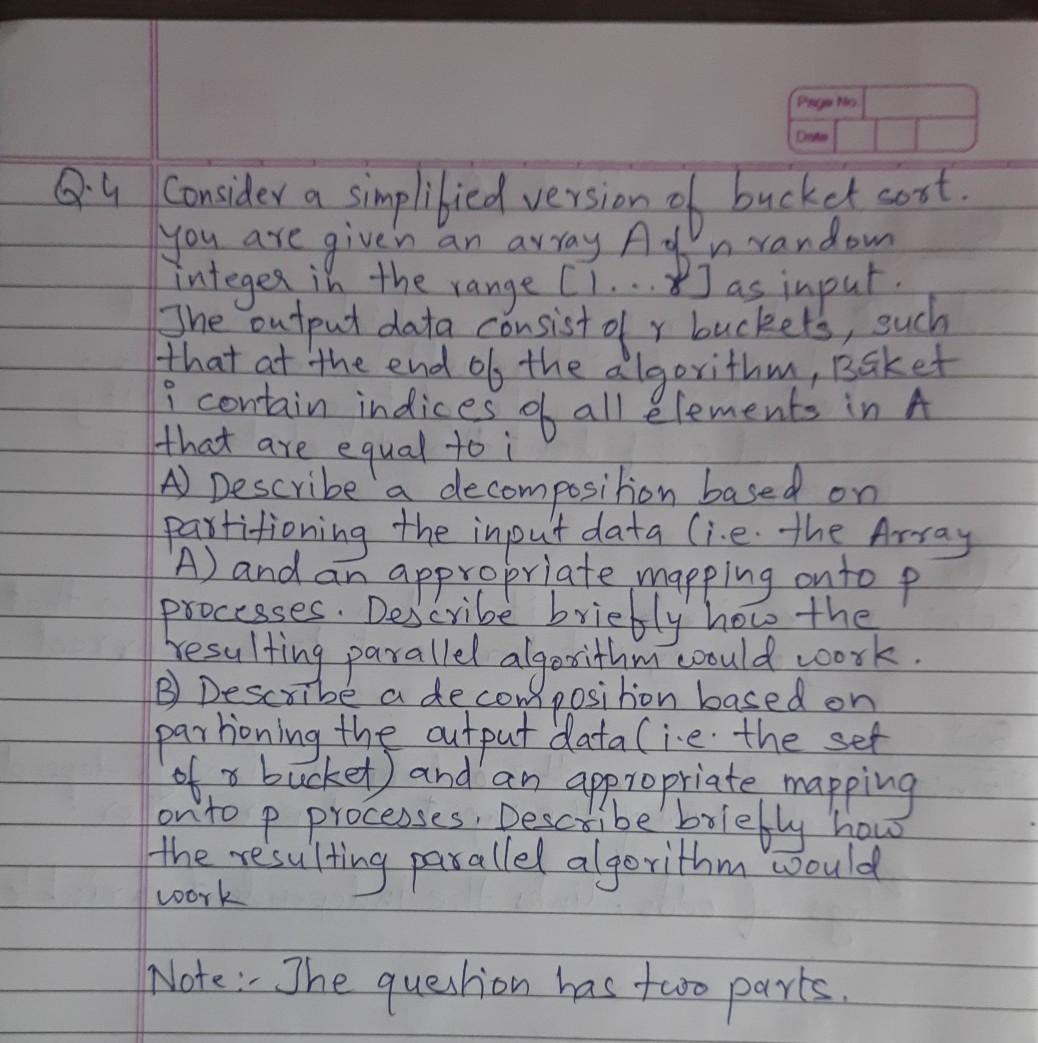 Page No.
Date
Q.4 Consider a simplified version of bucket sort.
you are given an array A of n random
integer in the range [1...r] as input.
The output data consist of r buckets, such
that at the end of the algorithm, Bucket
i contain indices of all elements in A
that are equal to i
A) Describe a decomposition based on
partitioning the input data (i.e. the Array
A) and an appropriate mapping onto p
processes. Describe briefly how the
resulting parallel algorithm would work.
B) Describe a decomposition based on
partioning the output data (i.e. the set
of r bucket) and an appropriate mapping
onto p processes. Describe briefly how
the resulting parallel algorithm would
work
Note:- The question has two parts.